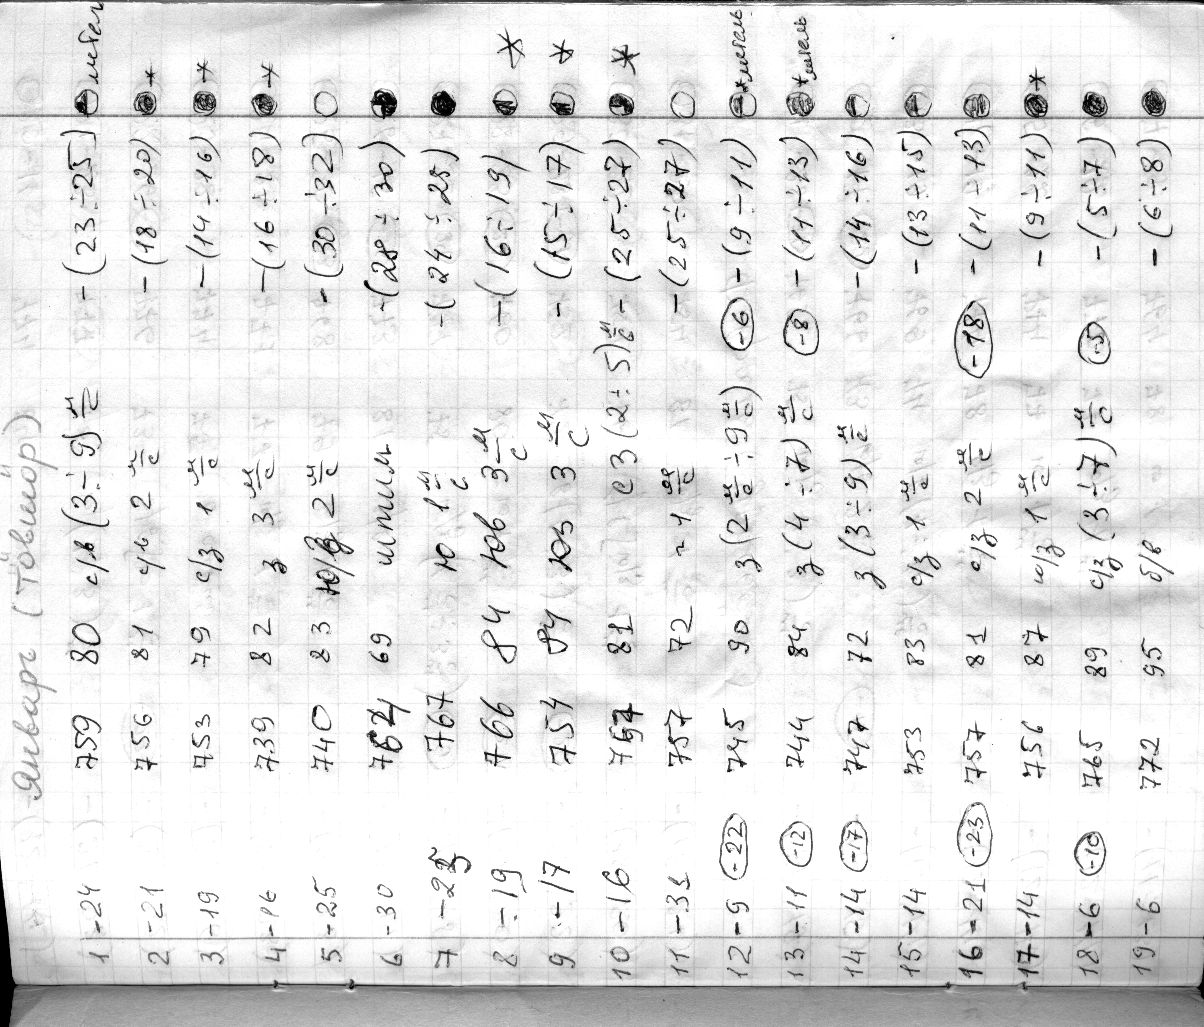 Январь (Товший)
1 -24 759 80 с/в (3÷9) м/с -(23÷25) метель
2 -21 756 81 с/в 2 м/с -(18÷20) *
3 -19 753 79 с/з 1 м/с -(14÷16) *
4 -16 739 82 з 3 м/с -(16÷18) *
5 -25 740 83 ю/з 2 м/с -(30÷32)
6 -30 69 штиль -(28÷30)
7 767 ю 1 м/с
8 -19 766 84 юв 3 м/с -(16÷19) *
9 -17 754 84 юз 3 м/с -(15÷17) *
10 -16 81 сз (2÷5) м/с -(25÷27) *
11 -31 757 72 ~1 м/с -(25÷27)
12 -9 (-22) 745 90 з (2 м/с ÷ 9 м/с) (-6) -(9÷11) * метель
13 -11 (-12) 744 84 з (4÷7) м/с (-8) -(11÷13) * метель
14 -14 (-17) 747 72 з (3÷9) м/с -(14÷16)
15 -14 753 83 с/з 1 м/с -(13÷15)
16 -21 (-23) 757 81 с/з 2 м/с (-18) -(11÷13)
17 -14 756 87 ю/з 1 м/с -(9÷11) *
18 -6 (-10) 765 89 с/з (3÷7) м/с (-5) -(5÷7)
19 -6 772 95 б/в -(6÷8)